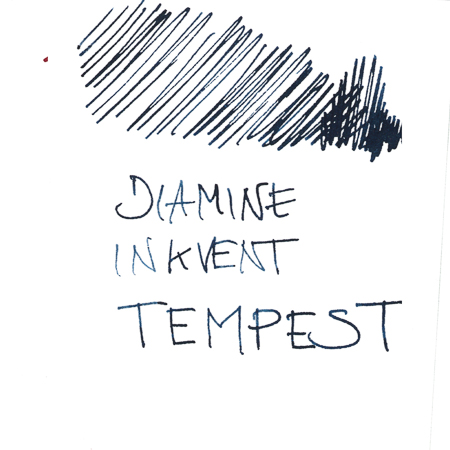 DIAMINE
INKVENT
TEMPEST